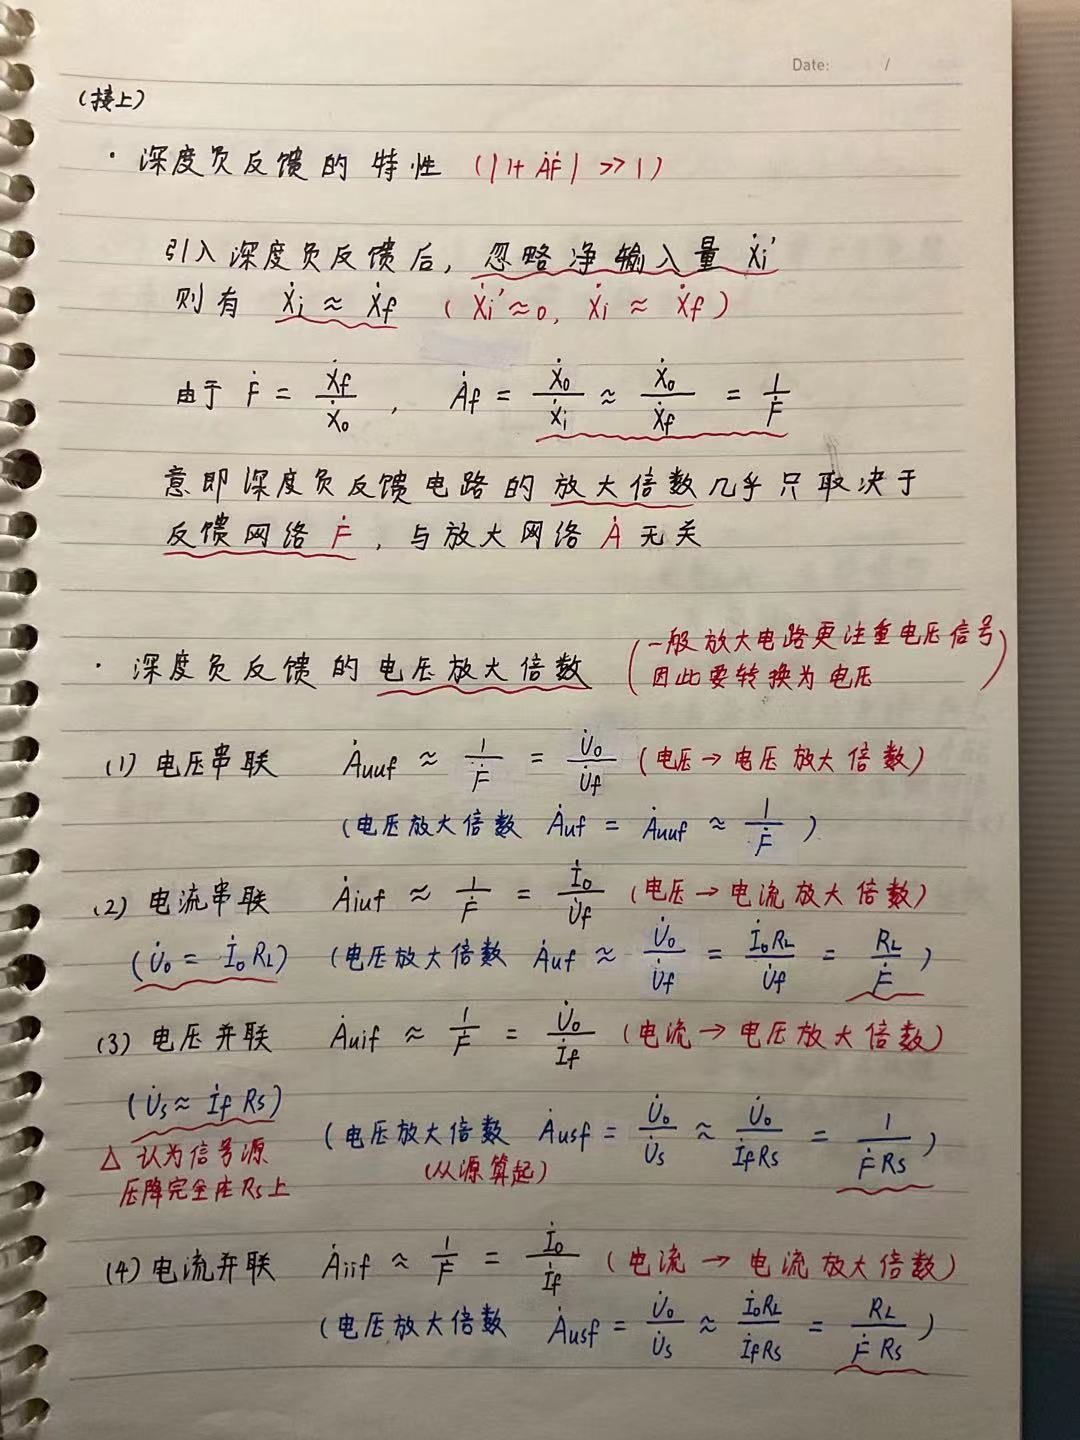 Date: /
(接上)
· 深度负反馈的特性 (|1+ȦḞ| >> 1)
引入深度负反馈后, 忽略净输入量 Ẋi'
则有 Ẋi ≈ Ẋf ( Ẋi'≈0, Ẋi ≈ Ẋf )
由于 Ḟ = Ẋf/Ẋo , Ȧf = Ẋo/Ẋi ≈ Ẋo/Ẋf = 1/Ḟ
意即深度负反馈电路的放大倍数几乎只取决于
反馈网络 Ḟ, 与放大网络 Ȧ 无关
· 深度负反馈的电压放大倍数 (一般放大电路更注重电压信号
因此要转换为电压)
(1) 电压串联 Ȧuuf ≈ 1/Ḟ = U̇o/U̇f (电压→电压放大倍数)
(电压放大倍数 Ȧuf = Ȧuuf ≈ 1/Ḟ )
(2) 电流串联 Ȧiuf ≈ 1/Ḟ = İo/U̇f (电压→电流放大倍数)
(U̇o = İoRL) (电压放大倍数 Ȧuf ≈ U̇o/U̇f = İoRL/U̇f = RL/Ḟ )
(3) 电压并联 Ȧuif ≈ 1/Ḟ = U̇o/İf (电流→电压放大倍数)
(U̇s ≈ İf Rs)
(电压放大倍数 Ȧusf = U̇o/U̇s ≈ U̇o/İfRs = 1/ḞRs )
△ 认为信号源 (从源算起)
压降完全在Rs上
(4) 电流并联 Ȧiif ≈ 1/Ḟ = İo/İf (电流→电流放大倍数)
(电压放大倍数 Ȧusf = U̇o/U̇s ≈ İoRL/İfRs = RL/ḞRs )